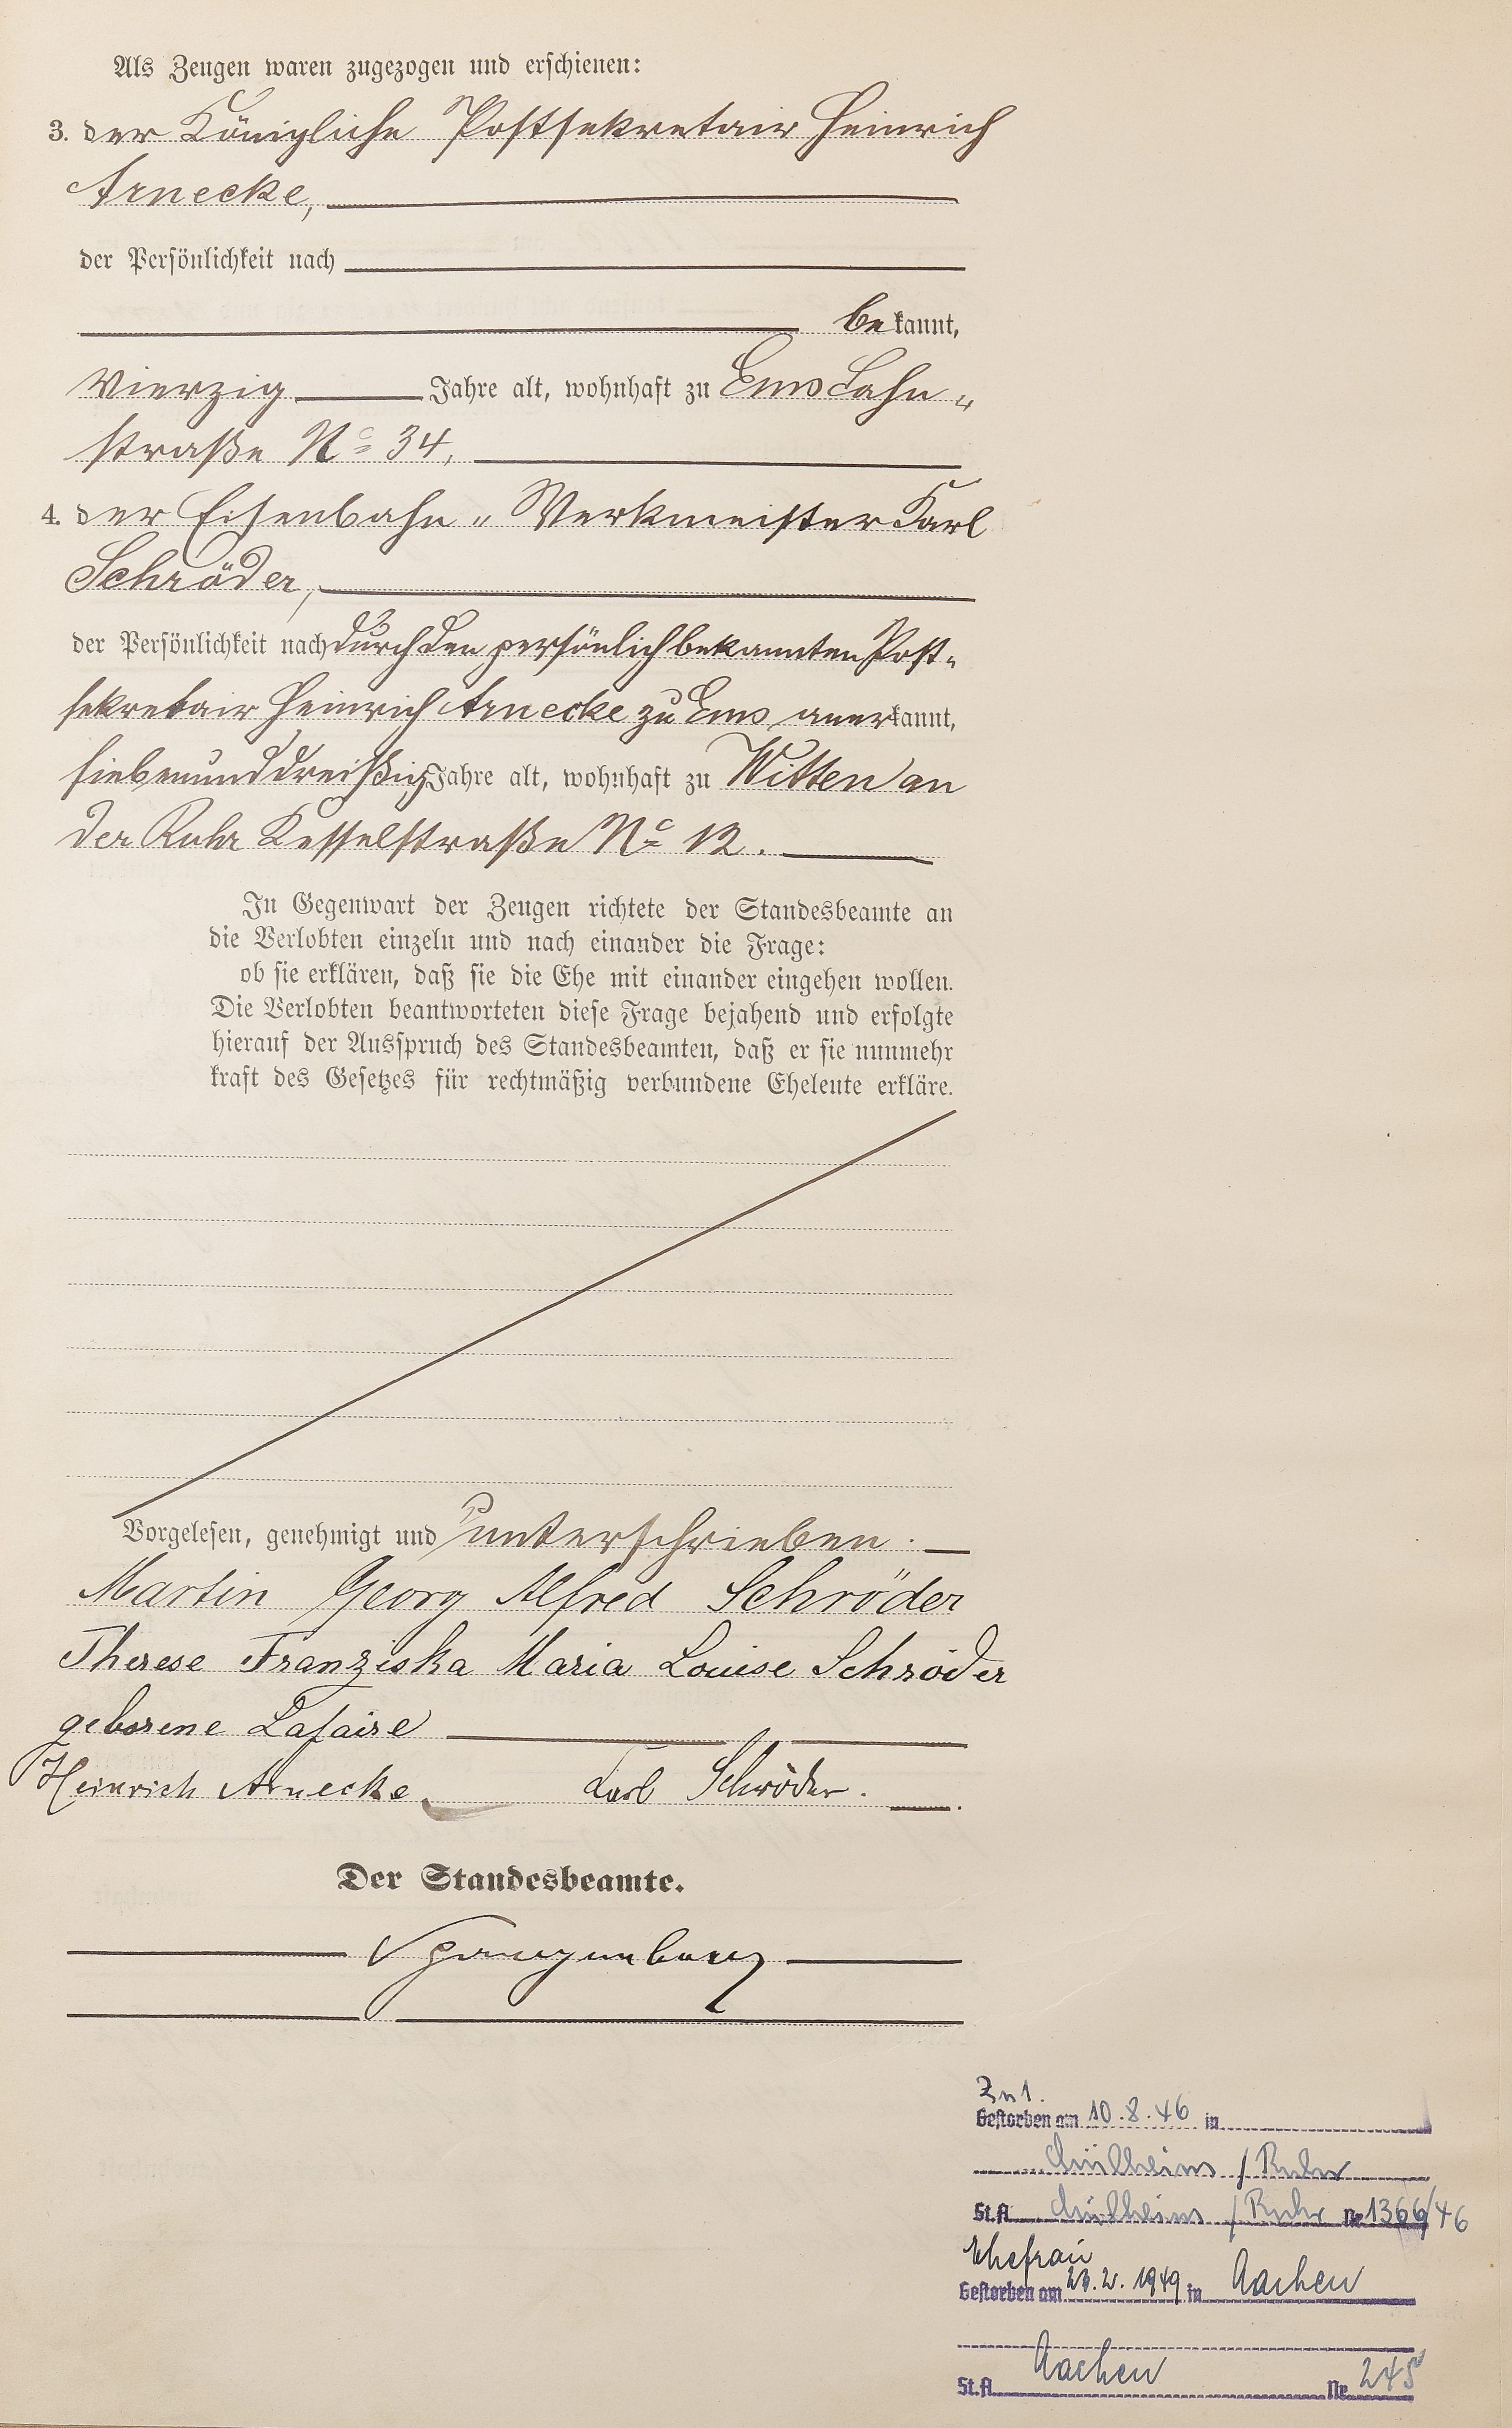 Als Zeugen waren zugezogen und erschienen:
3. der Königliche Postsekretair Heinrich
Arnecke,
der Persönlichkeit nach
bekannt,
vierzig Jahre alt, wohnhaft zu Ems Lahn-
straße No 34.
4. der Eisenbahn-Werkmeister Karl
Schröder,
der Persönlichkeit nach durch den persönlich bekannten Post-
sekretair Heinrich Arnecke zu Ems anerkannt,
siebenunddreißig Jahre alt, wohnhaft zu Witten an
der Ruhr Kesselstraße No 12.
In Gegenwart der Zeugen richtete der Standesbeamte an
die Verlobten einzeln und nach einander die Frage:
ob sie erklären, daß sie die Ehe mit einander eingehen wollen.
Die Verlobten beantworteten diese Frage bejahend und erfolgte
hierauf der Ausspruch des Standesbeamten, daß er sie nunmehr
kraft des Gesetzes für rechtmäßig verbundene Eheleute erkläre.
Vorgelesen, genehmigt und unterschrieben.
Martin Georg Alfred Schröder
Therese Franziska Maria Louise Schröder
geborene Lafaire
Heinrich Arnecke Karl Schröder.
Der Standesbeamte.
Spangenberg
Zu 1.
Gestorben am 10.8.46 in
Mülheim / Ruhr
St.A. Mülheim / Ruhr Nr. 1366/46
Ehefrau
Gestorben am 1949 in Aachen
St.A. Aachen Nr. 245